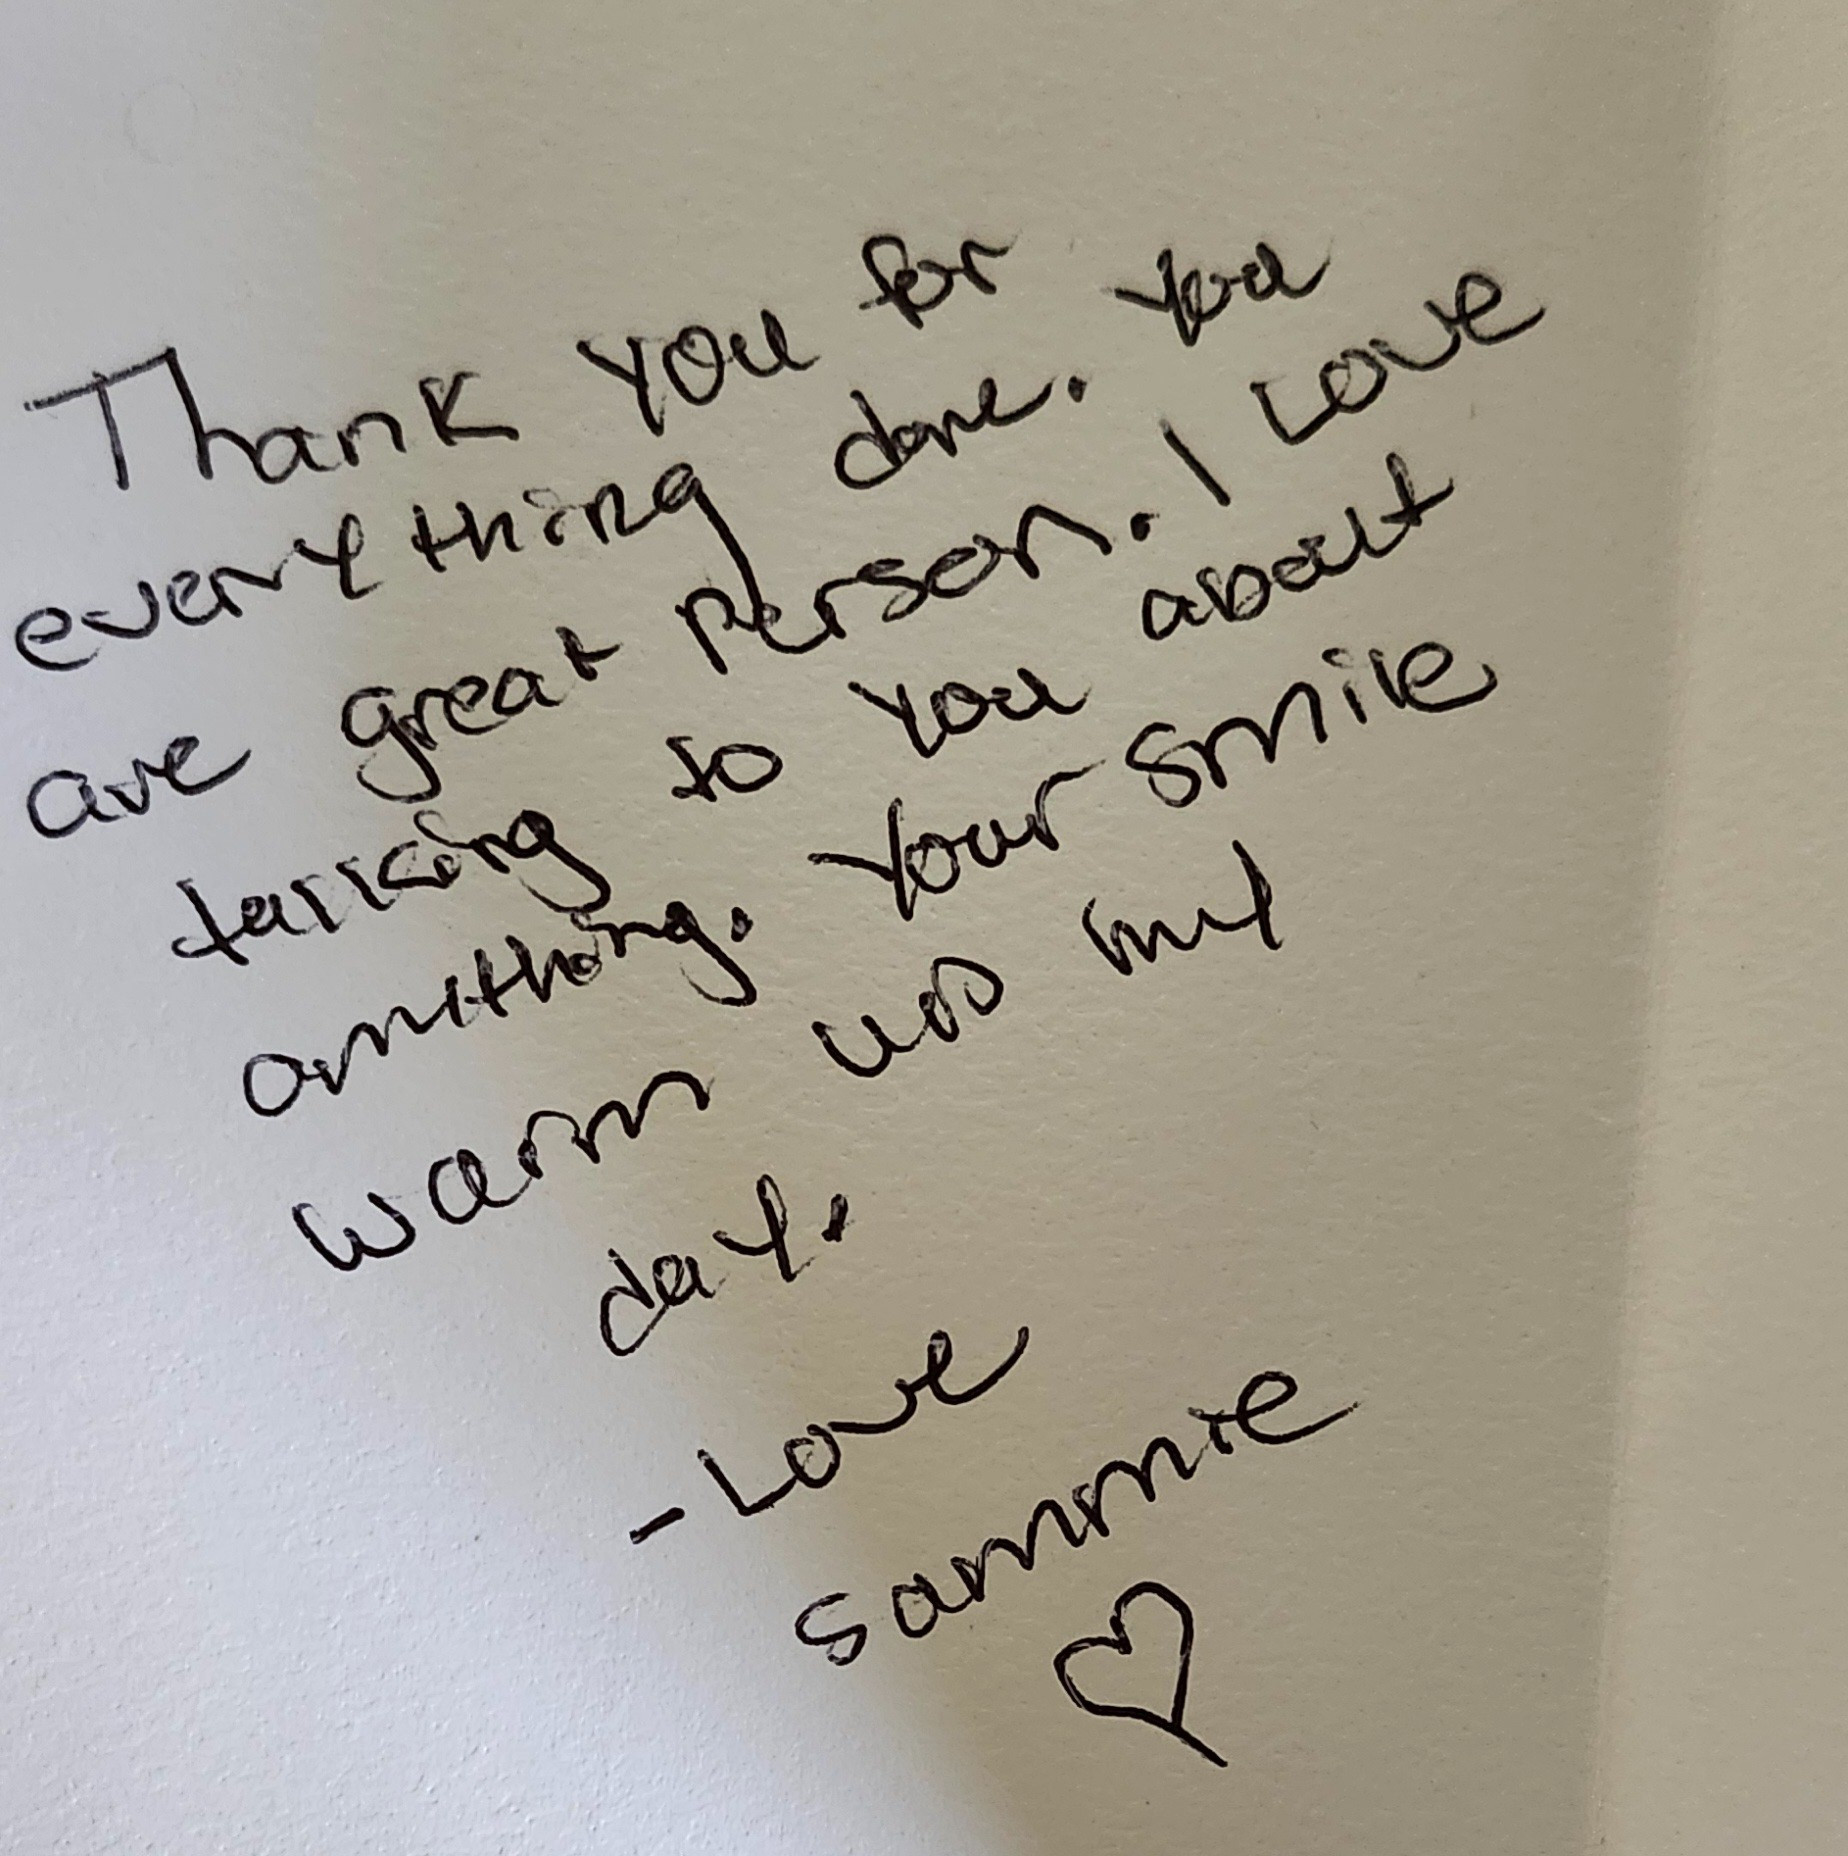 Thank you for
everything done. You
are great person. I Love
talking to you about
anything. Your smile
warm ups my
day.
- Love
Sammie